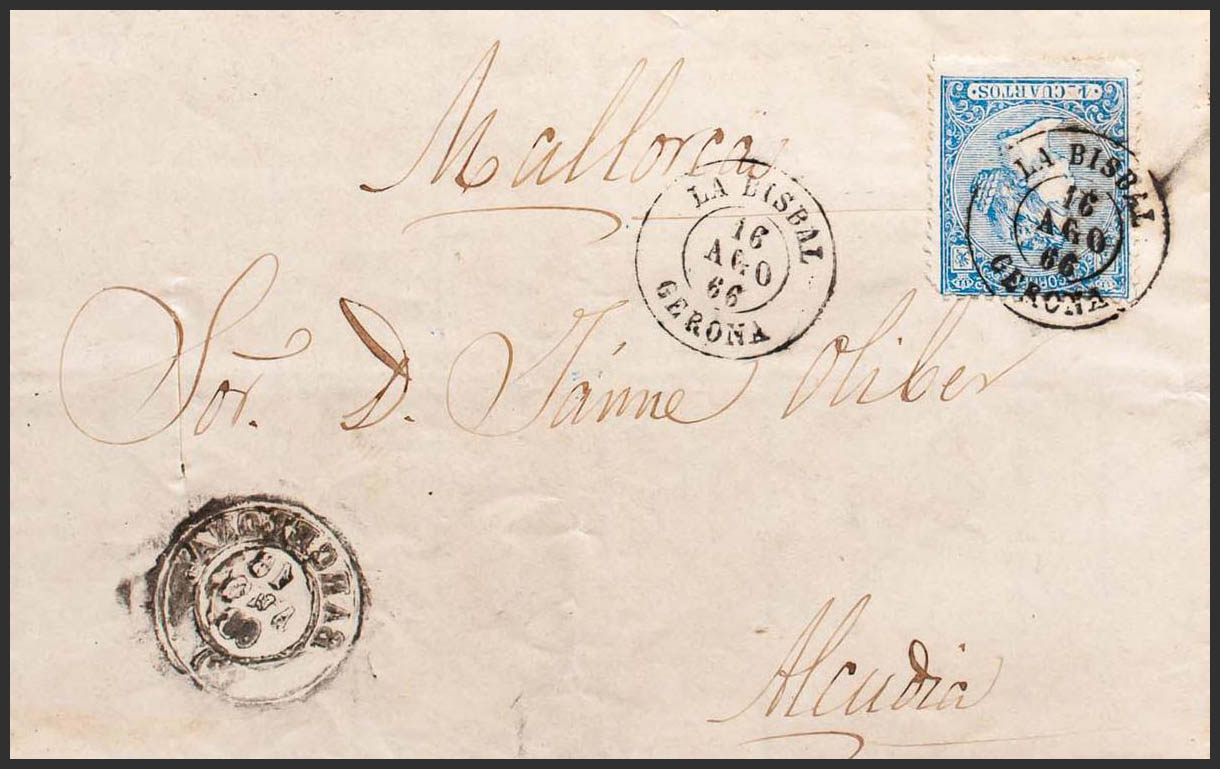 Mallorca
4 CUARTOS.
LA BISBAL
16
AGO
66
GERONA
LA BISBAL
16
AGO
66
GERONA
Sor. D. Jáime Oliber
BARCELONA
Alcudia